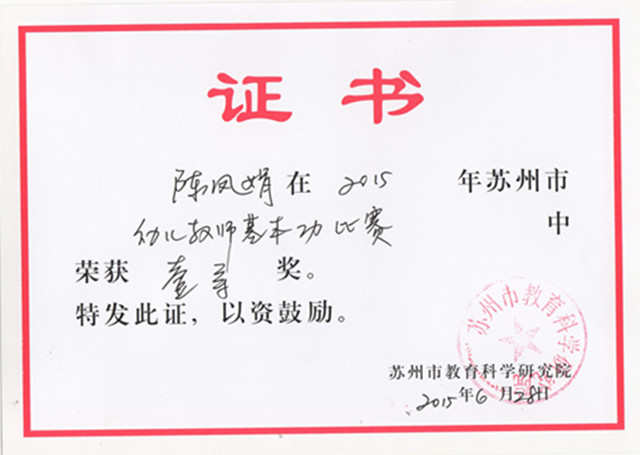 证书
陈凤娟在 2015 年苏州市
幼儿教师基本功比赛 中
荣获 壹等 奖。
特发此证，以资鼓励。
苏州市教育科学研究院
苏州市教育科学研究院
2015年6月28日